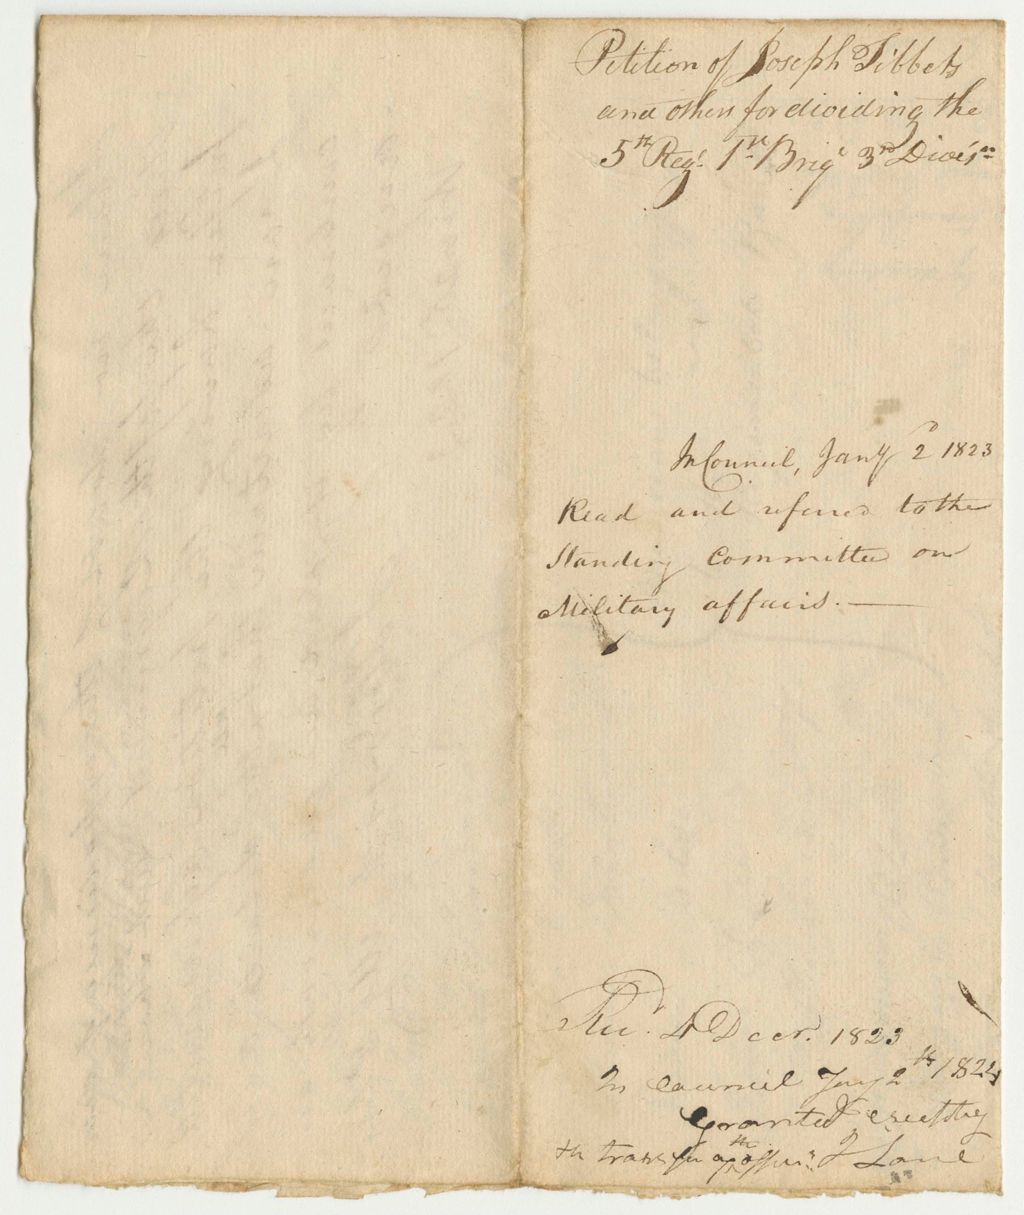 Petition of Joseph Tibbets
and others for dividing the
5th Regt. 1st Brigt 3rd Divisn
In Council, Jany 2d 1823
Read and referred to the
Standing Committee on
Military affairs. —
Recd. 4 Decr. 1823
In Council Jany 2th 1824
Granted excepting
th transfer of the J Lane